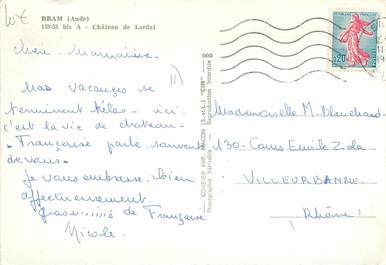 10€
BRAM (Aude)
159-53 bis A - Château de Lordat
Chère Marraine
Mes vacances se
terminent hélas - ici
c'est la vie de château -
Françoise parle souvent
de vous -
Je vous embrasse bien
affectueusement
de Françoise
Nicole
COMBIER IMP. MACON (S.-et-L.) "CIM"
Photographie Véritable - Reproduction Interdite
REPUBLIQUE FRANÇAISE
0,20
POSTES
Mademoiselle M. Blanchard
130 - Cours Emile Zola
VILLEURBANNE
Rhône